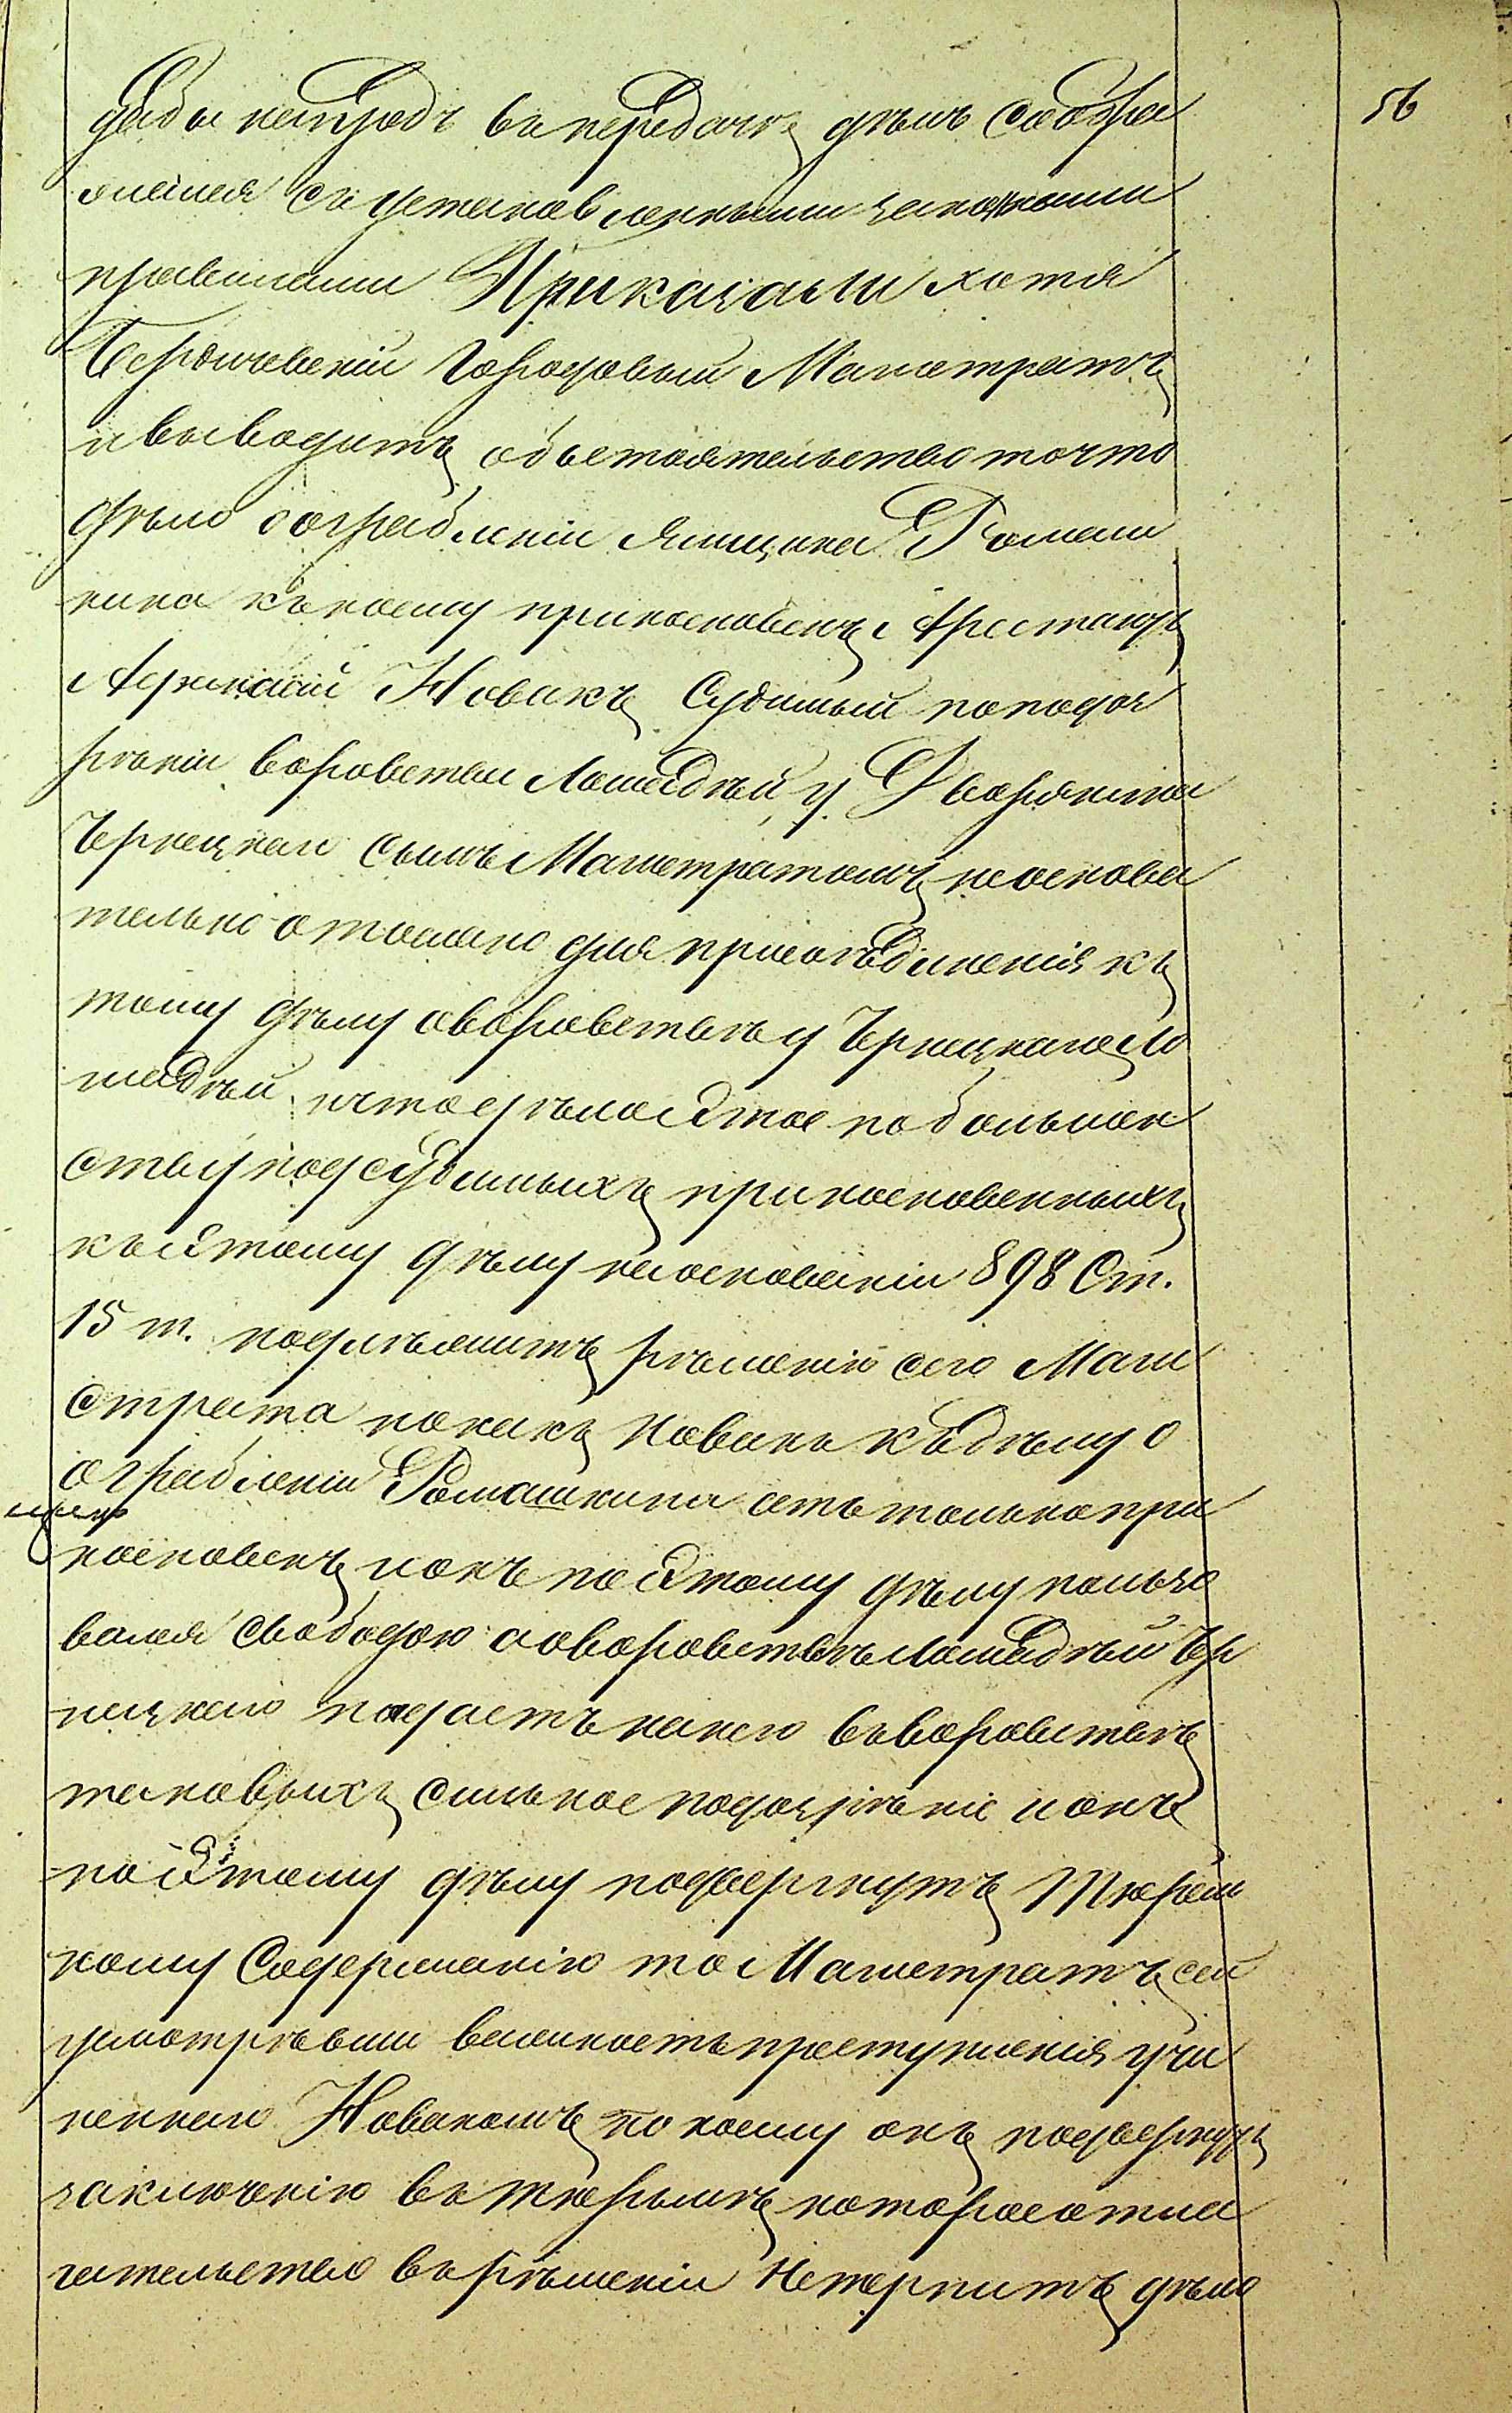 56
дабы напредъ въ передачѣ дѣлъ сообра
жался съ установленными законами
правилами Приказали хотя
Бердичевскій Городовый Магистратъ
и выводитъ обстоятельство то что
дѣло о ограбленіи Ямщика Ромаш
кина къ коему прикосновенъ Арестантъ
Новакъ Судимый по подоз
рѣніи воровства Лошадей у Дворянина
Чернецкаго симъ Магистратомъ неоснова
тельно отослано для присоединенія къ
тому дѣлу о воровствѣ у Чернецкаго Ло
шадей, и что дѣло это по большин
ству подсудимыхъ прикосновенныхъ
къ этому дѣлу на основаніи 898 Ст.
15 т. подлѣжитъ рѣшенію сего Маги
страта но какъ Новакъ къ дѣлу о
ограбленіи Ромашкина есть только при
косновенъ и онъ по этому дѣлу пользо
вался свободою а о воровствѣ Лошадей Чер
нецкаго падаетъ на него въ воровствѣ
таковыхъ сильное подозрѣніе и онъ
по этому дѣлу подвергнутъ Тюрем
ному Содержанію то Магистратъ сей
усмотрѣвши важность преступленія учи
неннаго Новакомъ по коему онъ подвергнутъ
заключенію въ тюрьмѣ которое отла
гательства въ рѣшеніи Нетерпитъ дѣло